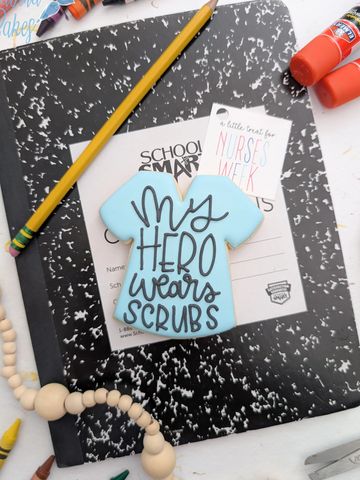 a little treat for
NURSES
WEEK
SCHOOL
SMART
My
HERO
wears
SCRUBS
Name
Sch
1-888